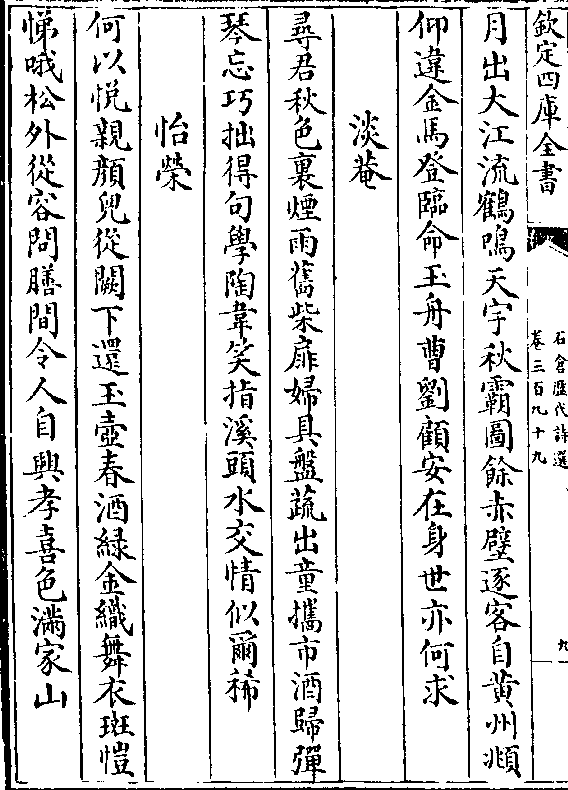 欽定四庫全書
石倉歷代詩選
卷三百九十九
九
月出大江流鶴鳴天宇秋霸圖餘赤壁逐客自黄州頫
仰違金馬登臨命玉舟曹劉顧安在身世亦何求
淡菴
尋君秋色裏煙雨舊柴扉婦具盤蔬出童攜市酒歸彈
琴忘巧拙得句學陶韋笑指溪頭水交情似爾稀
怡榮
何以悦親顔兒從闕下還玉壺春酒緑金織舞衣斑愷
悌哦松外從容問膳間令人自興孝喜色滿家山